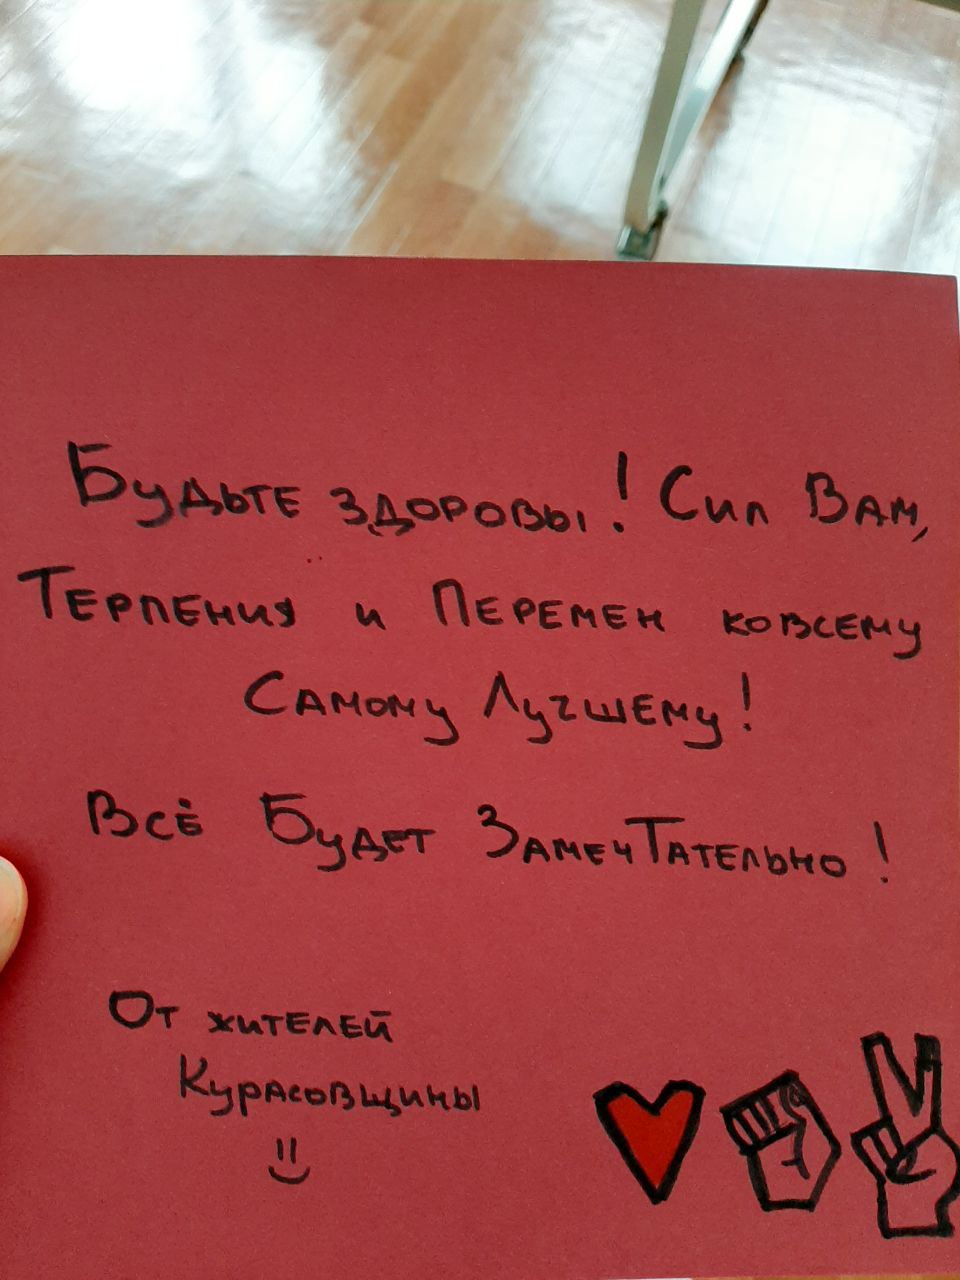 Будьте здоровы! Сил Вам,
Терпения и Перемен ковсему
Самому Лучшему!
Всё Будет ЗамечТательно!
От жителей
Курасовщины